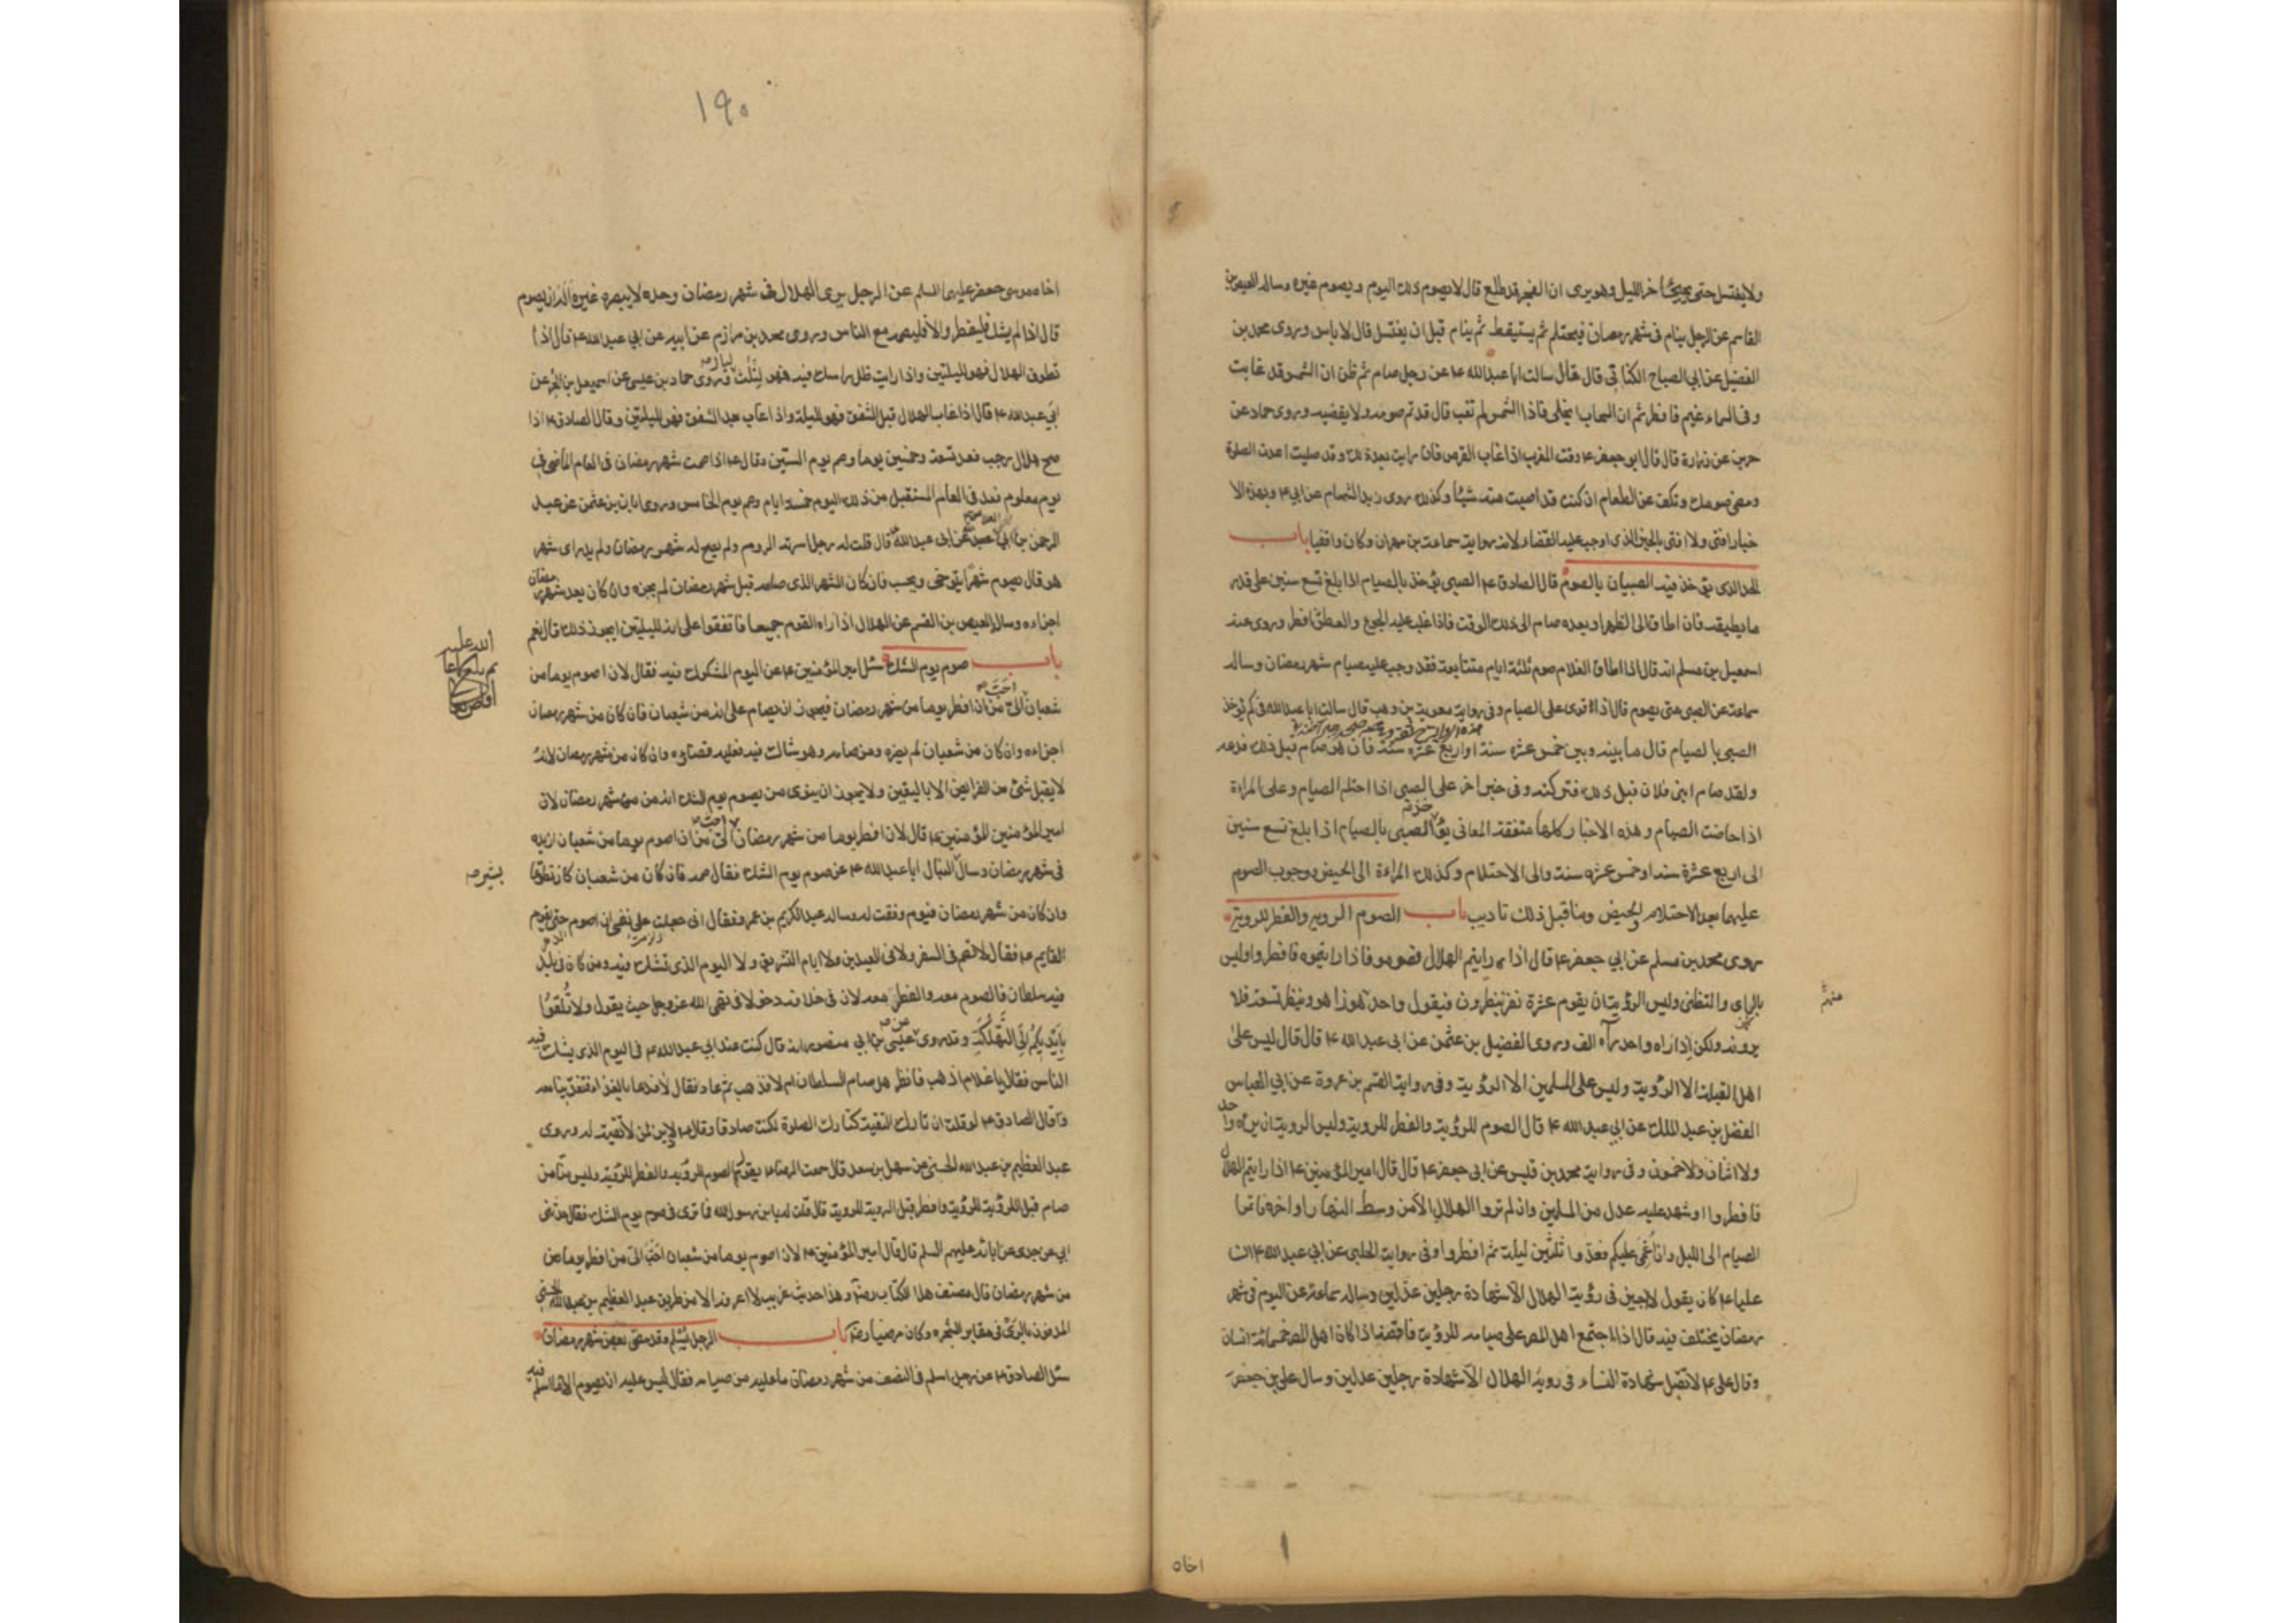 ولا يغتسل حتى يجئ آخر الليل وهو يرى ان الفجر قد طلع قال لا يصوم ذلك اليوم ويصوم غيره وساله العيص بن
القاسم عن الرجل ينام فى شهر رمضان فيحتلم ثم يستيقظ ثم ينام قبل ان يغتسل قال لا باس وروى محمد بن
الفضيل عن ابي الصباح الكناني قال سالت ابا عبد الله ع عن رجل صام ثم ظن ان الشمس قد غابت
وفى السماء غيم فافطر ثم ان السحاب انجلى فاذا الشمس لم تغب قال قد تم صومه ولا يقضيه وروى حماد عن
حريز عن زرارة قال قال ابو جعفر ع وقت المغرب اذا غاب القرص فان رايته بعد ذلك وقد صليت اعدت الصلوة
ومضى صومك وتكف عن الطعام ان كنت قد اصبت منه شيئا وكذلك روى زيد الشحام عن ابي ع وبهذه الا
خبار افتى ولا افتى بالخبر الذى اوجب عليه القضاء لانه رواية سماعة بن مهران وكان واقفيا باب
الحد الذى يؤخذ فيه الصبيان بالصوم قال الصادق ع الصبي يؤخذ بالصيام اذا بلغ تسع سنين على قدر
ما يطيقه فان اطاق الى الظهر او بعده صام الى ذلك الوقت فاذا غلب عليه الجوع والعطش افطر وروى عنه
اسمعيل بن مسلم انه قال اذا اطاق الغلام صوم ثلثة ايام متتابعة فقد وجب عليه صيام شهر رمضان وساله
سماعة عن الصبي متى يصوم قال اذا قوى على الصيام وفى رواية معوية بن وهب قال سالت ابا عبد الله فى كم يؤخذ
الصبي بالصيام قال ما بينه وبين خمس عشرة سنة او اربع عشرة سنة فان هو صام قبل ذلك فدعه
ولقد صام ابنى فلان قبل ذلك فتركته وفى خبر اخر على الصبي اذا احتلم الصيام وعلى المراة
اذا حاضت الصيام وهذه الاخبار كلها متفقة المعانى يؤخذ الصبي بالصيام اذا بلغ تسع سنين
الى اربع عشرة سنة او خمس عشرة سنة والى الاحتلام وكذلك المراة الى الحيض ووجوب الصوم
عليهما بعد الاحتلام والحيض وما قبل ذلك تاديب باب الصوم للروية والفطر للروية
روى محمد بن مسلم عن ابي جعفر ع قال اذا رايتم الهلال فصوموا فاذا رايتموه فافطروا وليس
بالراى والتظنى وليس الرؤية ان يقوم عشرة نفر ينظرون فيقول واحد هو ذا هو وينظر تسعة فلا
يرونه ولكن اذا راه واحد راه الف وروى الفضيل بن عثمن عن ابى عبد الله ع قال قال ليس على
اهل القبلة الا الرؤية وليس على المسلمين الا الرؤية وفى رواية القسم بن عروة عن ابي العباس
الفضل بن عبد الملك عن ابي عبد الله ع قال الصوم للرؤية والفطر للروية وليس الروية ان يراه واحد
ولا اثنان ولا خمسون وفى رواية محمد بن قيس عن ابى جعفر ع قال قال امير المؤمنين ع اذا رايتم الهلال
فافطروا او شهد عليه عدل من المسلمين وان لم تروا الهلال الا من وسط النهار او اخره فاتموا
الصيام الى الليل وان غمى عليكم فعدوا ثلثين ليلة ثم افطروا وفى رواية الحلبى عن ابي عبد الله ع ان
عليا ع كان يقول لا اجيز فى رؤية الهلال الا شهادة رجلين عدلين وساله سماعة عن اليوم فى شهر
رمضان يختلف فيه قال اذا اجتمع اهل المصر على صيامه للرؤية فاقضه اذا كان اهل المصر خمسمائة انسان
وقال على ع لا تقبل شهادة النساء فى روية الهلال الا شهادة رجلين عدلين وسال على بن جعفر
اخاه
١٩٠
اخاه موسى جعفر عليهما السلم عن الرجل يرى الهلال فى شهر رمضان وحده لا يبصره غيره اله ان يصوم
قال اذا لم يشك فليفطر والا فليصم مع الناس وروى محمد بن مرازم عن ابيه عن ابي عبد الله ع قال اذا
تطوق الهلال فهو لليلتين واذا رايت ظل راسك فيه فهو لثلث وروى حماد بن عيسى عن اسمعيل بن الحر عن
ابي عبد الله ع قال اذا غاب الهلال قبل الشفق فهو لليلة واذا غاب بعد الشفق فهو لليلتين وقال الصادق ع اذا
صح هلال رجب فعد تسعة وخمسين يوما وصم يوم الستين وقال ع اذا صمت شهر رمضان فى العام الماضى فى
يوم معلوم فعد فى العام المستقبل من ذلك اليوم خمسة ايام وصم يوم الخامس وروى ابان بن عثمن عن عبد
الرحمن بن ابي عبد الله عن ابى عبد الله ع قال قلت له رجل اسرته الروم ولم يصح له شهر رمضان ولم يدر اى شهر
هو قال يصوم شهرا يتوخى ويحسب فان كان الشهر الذى صامه قبل شهر رمضان لم يجزه وان كان بعد شهر رمضان
اجزاه وساله العيص بن القسم عن الهلال اذا راه القوم جميعا فاتفقوا على انه لليلتين ايجوز ذلك قال نعم
باب صوم يوم الشك سئل امير المؤمنين ع عن اليوم المشكوك فيه فقال لان اصوم يوما من
شعبان احب الى من ان افطر يوما من شهر رمضان فيجوز ان يصام على انه من شعبان فان كان من شهر رمضان
اجزاه وان كان من شعبان لم يضره ومن صامه وهو شاك فيه فعليه قضاؤه وان كان من شهر رمضان لانه
لا يقبل شئ من الفرايض الا باليقين ولا يجوز ان ينوى من يصوم يوم الشك انه من شهر رمضان لان
امير المؤمنين ع قال لان افطر يوما من شهر رمضان احب الى من ان اصوم يوما من شعبان ازيده
فى شهر رمضان وسال بشير النبال ابا عبد الله ع عن صوم يوم الشك فقال صمه فان كان من شعبان كان تطوعا
وان كان من شهر رمضان فيوم وفقت له وساله عبد الكريم بن عمرو فقال انى جعلت على نفسى ان اصوم حتى يقوم
القايم ع فقال لا تصم فى السفر ولا فى العيدين ولا ايام التشريق ولا اليوم الذى تشك فيه ومن كان فى بلد
فيه سلطان فالصوم معه والفطر معه لان فى خلافه دخولا فى نهى الله عز وجل حيث يقول ولا تلقوا
بايديكم الى التهلكة وقد روى عن عيسى بن ابي منصور انه قال كنت عند ابي عبد الله ع فى اليوم الذى يشك فيه
الناس فقال يا غلام اذهب فانظر هل صام السلطان ام لا فذهب ثم عاد فقال لا فدعا بالغداء فتغدينا معه
وقال الصادق ع لو قلت ان تارك التقية كتارك الصلوة لكنت صادقا وقال ع لا دين لمن لا تقية له وروى
عبد العظيم بن عبد الله الحسنى عن سهل بن سعد قال سمعت الرضا ع يقول الصوم للرؤية والفطر للرؤية وليس منا من
صام قبل الرؤية للرؤية وافطر قبل الروية للروية قال قلت له يابن رسول الله فما ترى فى صوم يوم الشك فقال حدثنى
ابي عن جدى عن ابائه عليهم السلم قال قال امير المؤمنين ع لان اصوم يوما من شعبان احب الى من ان افطر يوما من
من شهر رمضان قال مصنف هذا الكتاب رضه وهذا حديث غريب لا اعرفه الا من طريق عبد العظيم بن عبد الله الحسنى
المدفون بالرى فى مقابر الشجرة وكان مرضيا رضه باب الرجل يسلم وقد مضى بعض شهر رمضان
سئل الصادق ع عن رجل اسلم فى النصف من شهر رمضان ما عليه من صيامه فقال ليس عليه ان يصوم الا ما اسلم فيه